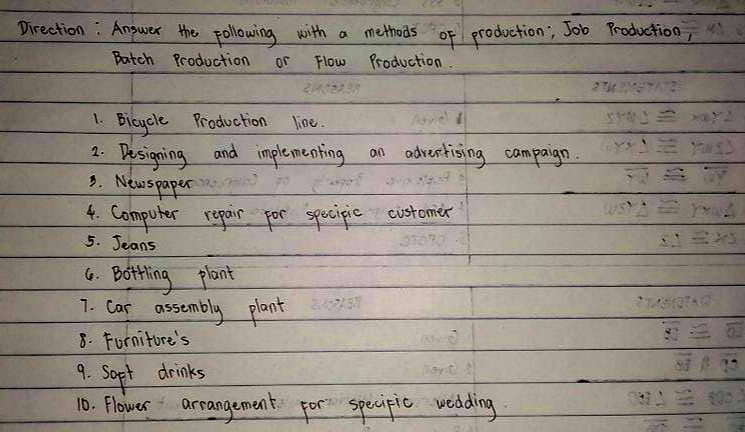 Direction : Answer the following with a methods of production; Job Production,
Batch Production or Flow Production.
1. Bicycle Production line.
2. Designing and implementing an advertising campaign.
3. Newspaper
4. Computer repair for specific customer
5. Jeans
6. Bottling plant
7. Car assembly plant
8. Furniture's
9. Soft drinks
10. Flower arrangement for specific wedding.